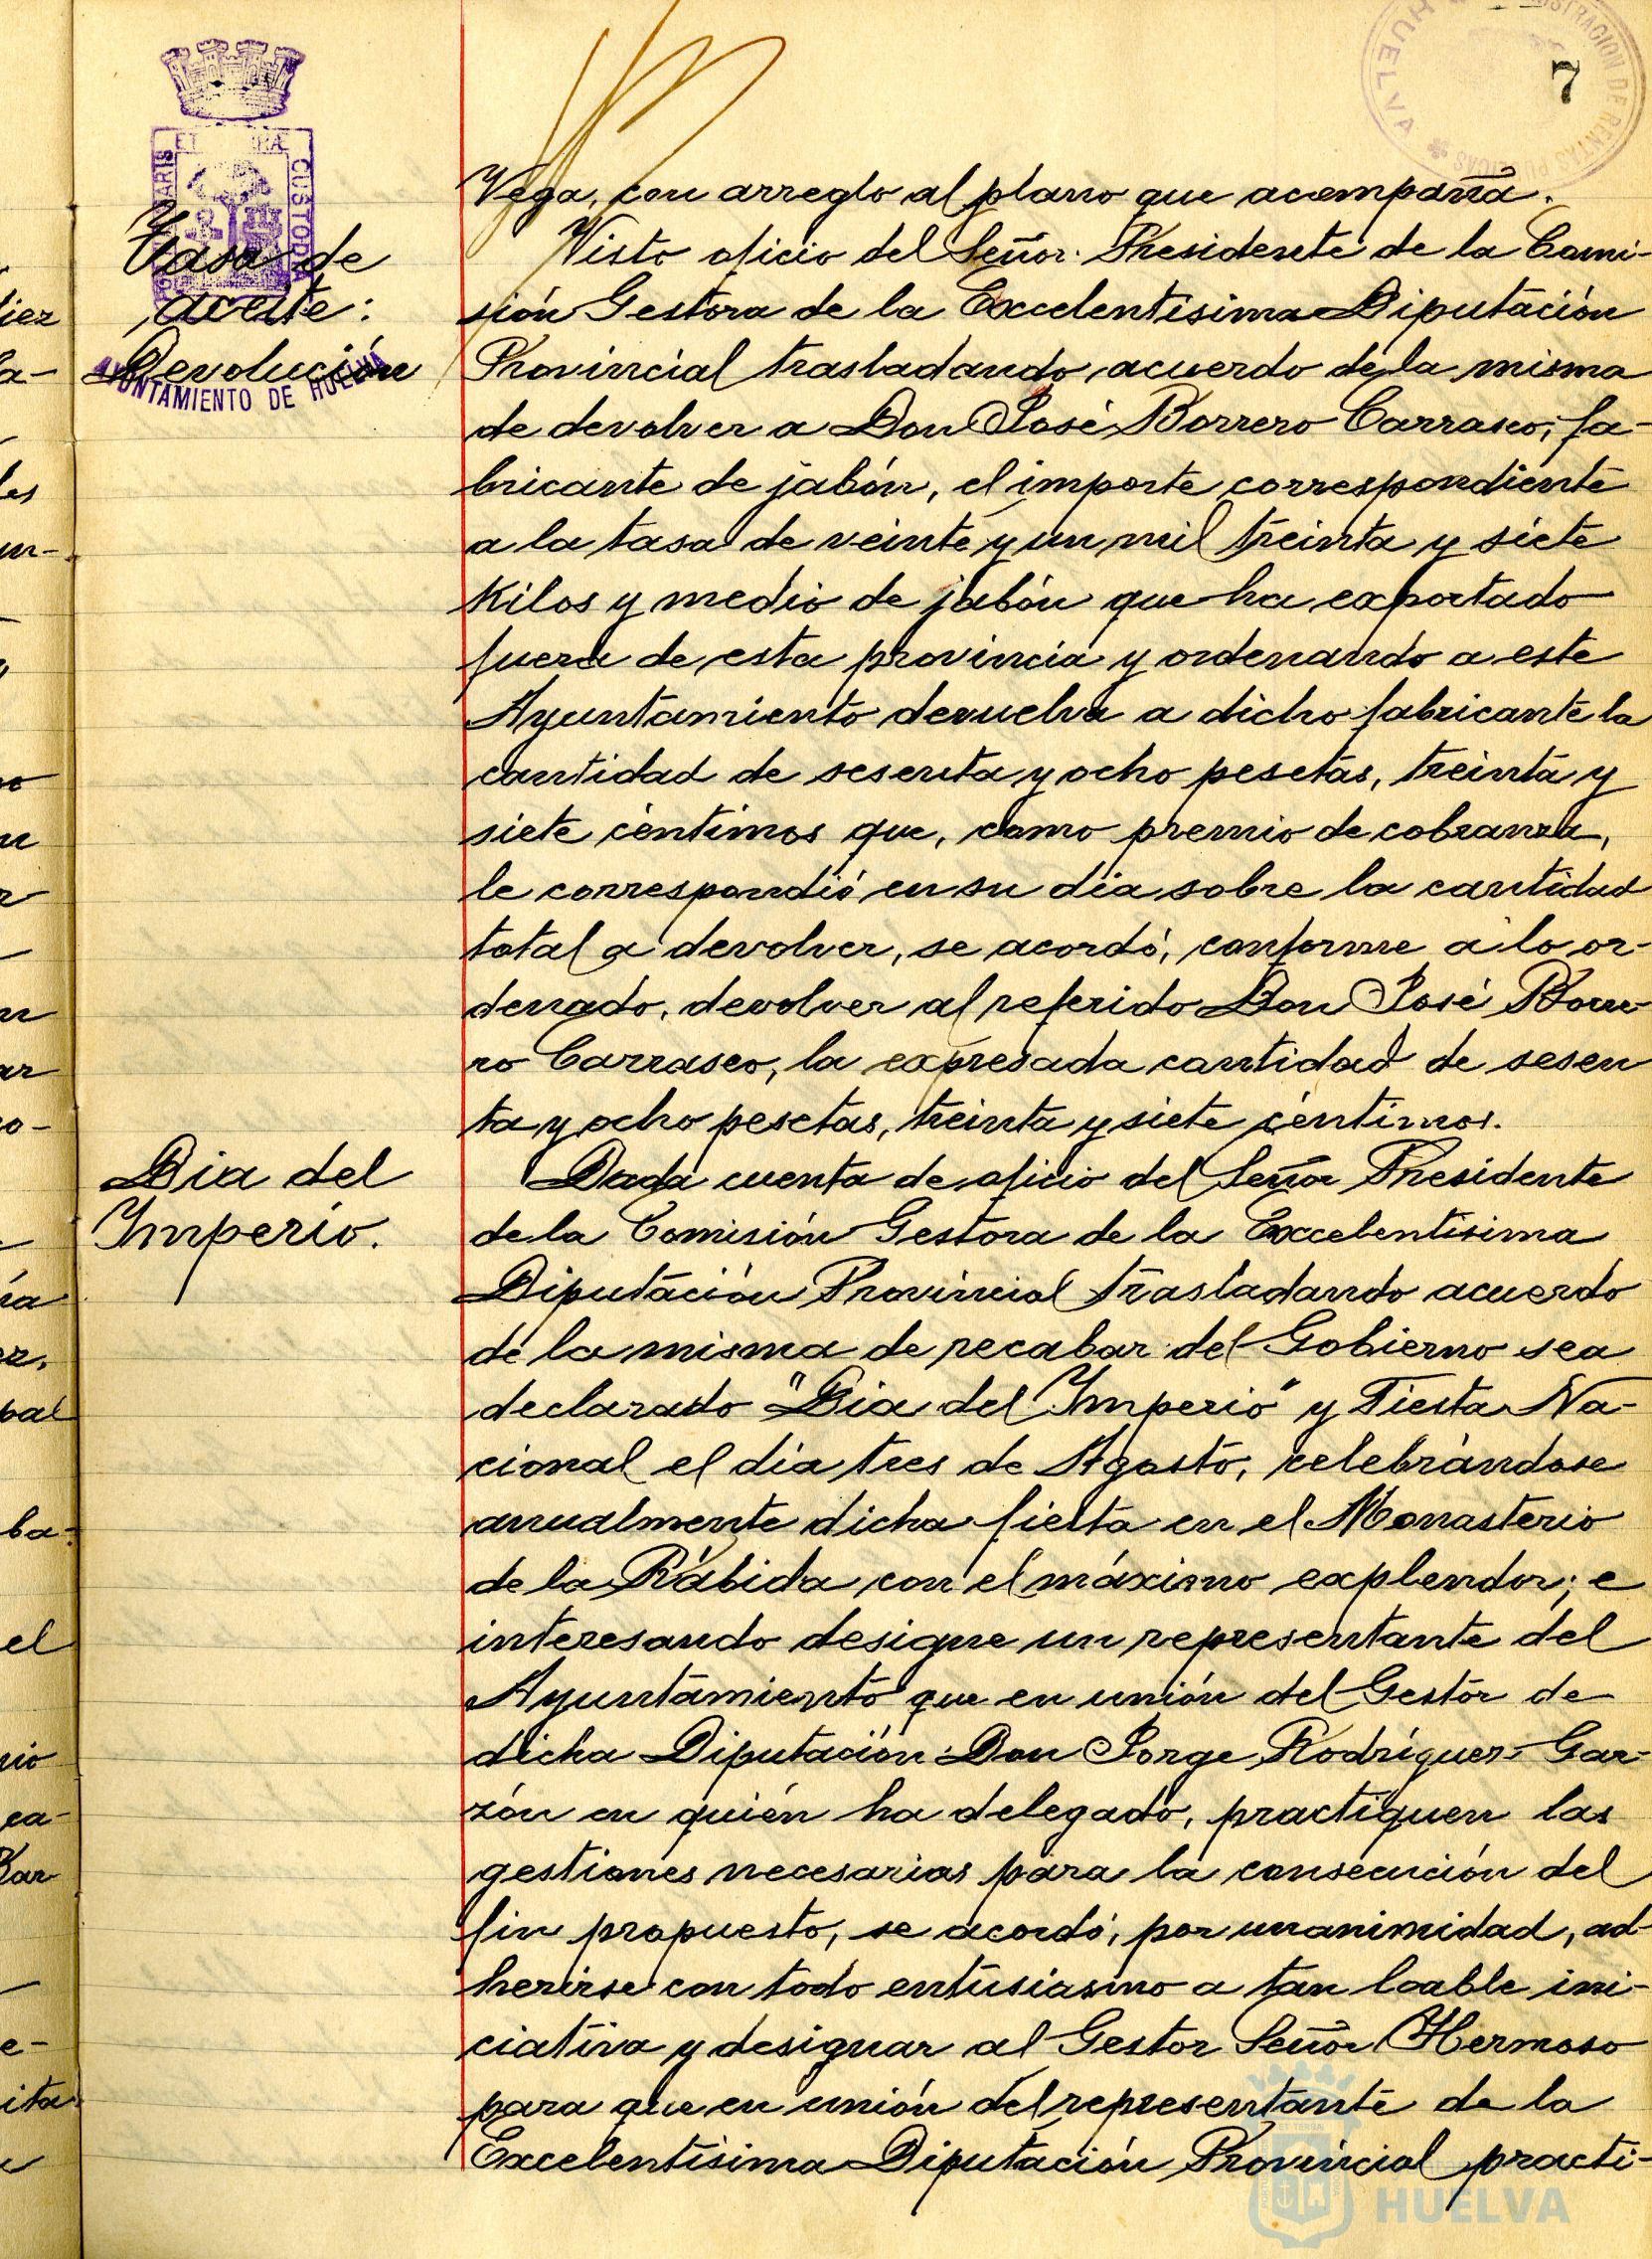 7
Vega, con arreglo al plano que acompaña.
Tasa de
aceite:
Devolución
AYUNTAMIENTO DE HUELVA
Visto oficio del Señor Presidente de la Comi-
sión Gestora de la Excelentísima Diputación
Provincial trasladando acuerdo de la misma
de devolver a Don José Borrero Carrasco, fa-
bricante de jabón, el importe correspondiente
a la tasa de veinte y un mil treinta y siete
kilos y medio de jabón que ha exportado
fuera de esta provincia y ordenando a este
Ayuntamiento devuelva a dicho fabricante la
cantidad de sesenta y ocho pesetas, treinta y
siete céntimos que, como premio de cobranza,
le correspondió en su día sobre la cantidad
total a devolver, se acordó, conforme a lo or-
denado, devolver al referido Don José Borre-
ro Carrasco, la expresada cantidad de sesen
ta y ocho pesetas, treinta y siete céntimos.
Dia del
Imperio.
Dada cuenta de oficio del Señor Presidente
de la Comisión Gestora de la Excelentísima
Diputación Provincial trasladando acuerdo
de la misma de recabar del Gobierno sea
declarado "Dia del Imperio" y Fiesta Na-
cional el día tres de Agosto, celebrándose
anualmente dicha fiesta en el Monasterio
de la Rábida con el máximo explendor; e
interesando designe un representante del
Ayuntamiento que en unión del Gestor de
dicha Diputación Don Jorge Rodríguez Gar-
zón en quién ha delegado, practiquen las
gestiones necesarias para la consecución del
fin propuesto, se acordó, por unanimidad, ad-
herirse con todo entusiasmo a tan loable ini-
ciativa y designar al Gestor Señor Hermoso
para que en unión del representante de la
Excelentísima Diputación Provincial practi-
HUELVA